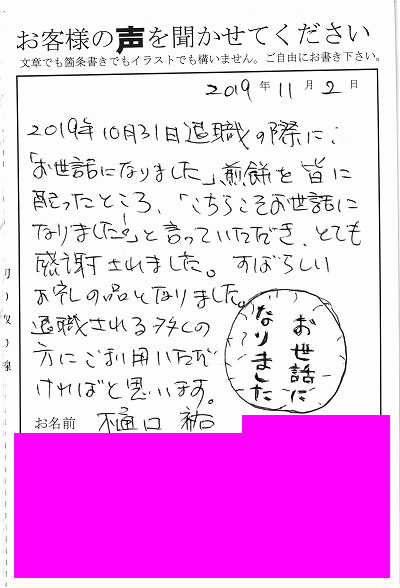 お客様の声を聞かせてください
文章でも箇条書きでもイラストでも構いません。ご自由にお書き下さい。
2019年11月2日
2019年10月31日退職の際に、
「お世話になりました」煎餅を皆に
配ったところ、「こちらこそお世話に
なりました!」と言っていただき、とても
感謝されました。すばらしい
お礼の品となりました。
退職される多くの
方にご利用いただ
ければと思います。
お世話に
なりました
お名前 樋口 祐
切り取り線